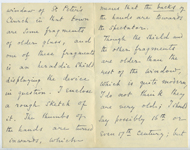 window of St Peter's
Church in that town
are some fragments
of older glass, and
one of these fragments
is an heraldic shield
displaying the device
in question. I enclose
a rough sketch of
it. The thumbs of
the hands are turned
inwards, which
means that the backs of
the hands are towards
the spectator.
Though the shield and
the other fragments
are older than the
rest of the window,
which is quite modern,
I do not think they
are very old; I should
say possibly 16th or
even 17th century, but